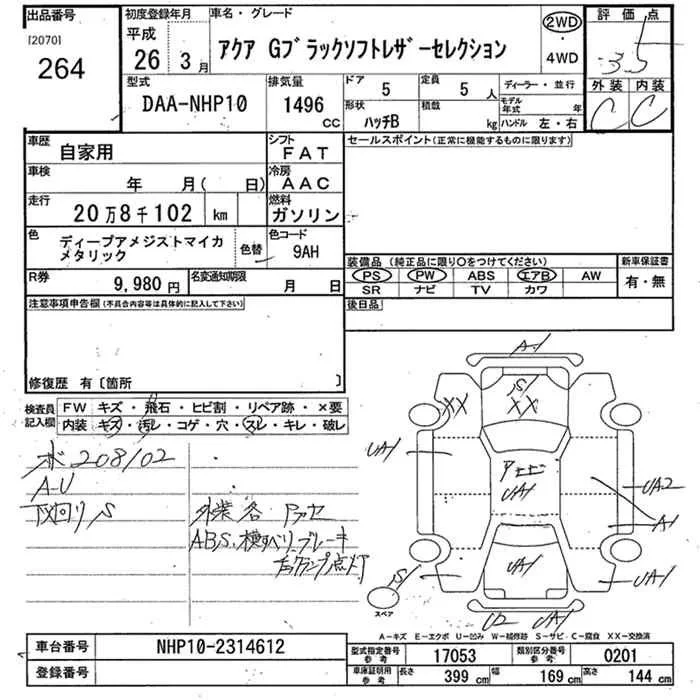 出品番号
[2070]
264
初度登録年月
平成
26年 3月
車名・グレード
アクア Gブラックソフトレザーセレクション
2WD
・
4WD
評価点
3.5
外装 内装
C C
型式
DAA-NHP10
排気量
1496
CC
ドア
5
定員
5人
ディーラー・並行
形状
ハッチB
積載
kg
モデル年式
年
ハンドル 左・右
車歴
自家用
シフト
FAT
車検
年 月( 日)
冷房
AAC
走行
20万8千102 km
燃料
ガソリン
色
ディープアメジストマイカ
メタリック
色替
色コード
9AH
R券
9,980円
名変通知期限
月 日
セールスポイント(正常に機能するものに限ります)
装備品(純正品に限り○をつけてください)
PS PW ABS エアB AW
SR ナビ TV カワ
新車保証書
有・無
後日品
注意事項申告欄(不具合内容等は具体的に記入して下さい)
修復歴 有〔箇所 〕
検査員
記入欄
FW キズ・飛石・ヒビ割・リペア跡・×要
内装 キズ・汚レ・コゲ・穴・スレ・キレ・破レ
メ 208102
A-U
下回りS
外装 各 Pアセ
ABS、横すべり、ブレーキ
チェックランプ点灯
A1
S1
XX XX
UA1
Pアセ
UA1
UA2
A1
UA1
S1
スペア
UA1
U2 UA1
A-キズ E-エクボ U-凹み W-補修跡 S-サビ C-腐食 XX-交換済
車台番号
NHP10-2314612
登録番号
型式指定番号
参考
17053
類別区分番号
参考
0201
車庫証明用
参考
長さ
399 cm
幅
169 cm
高さ
144 cm